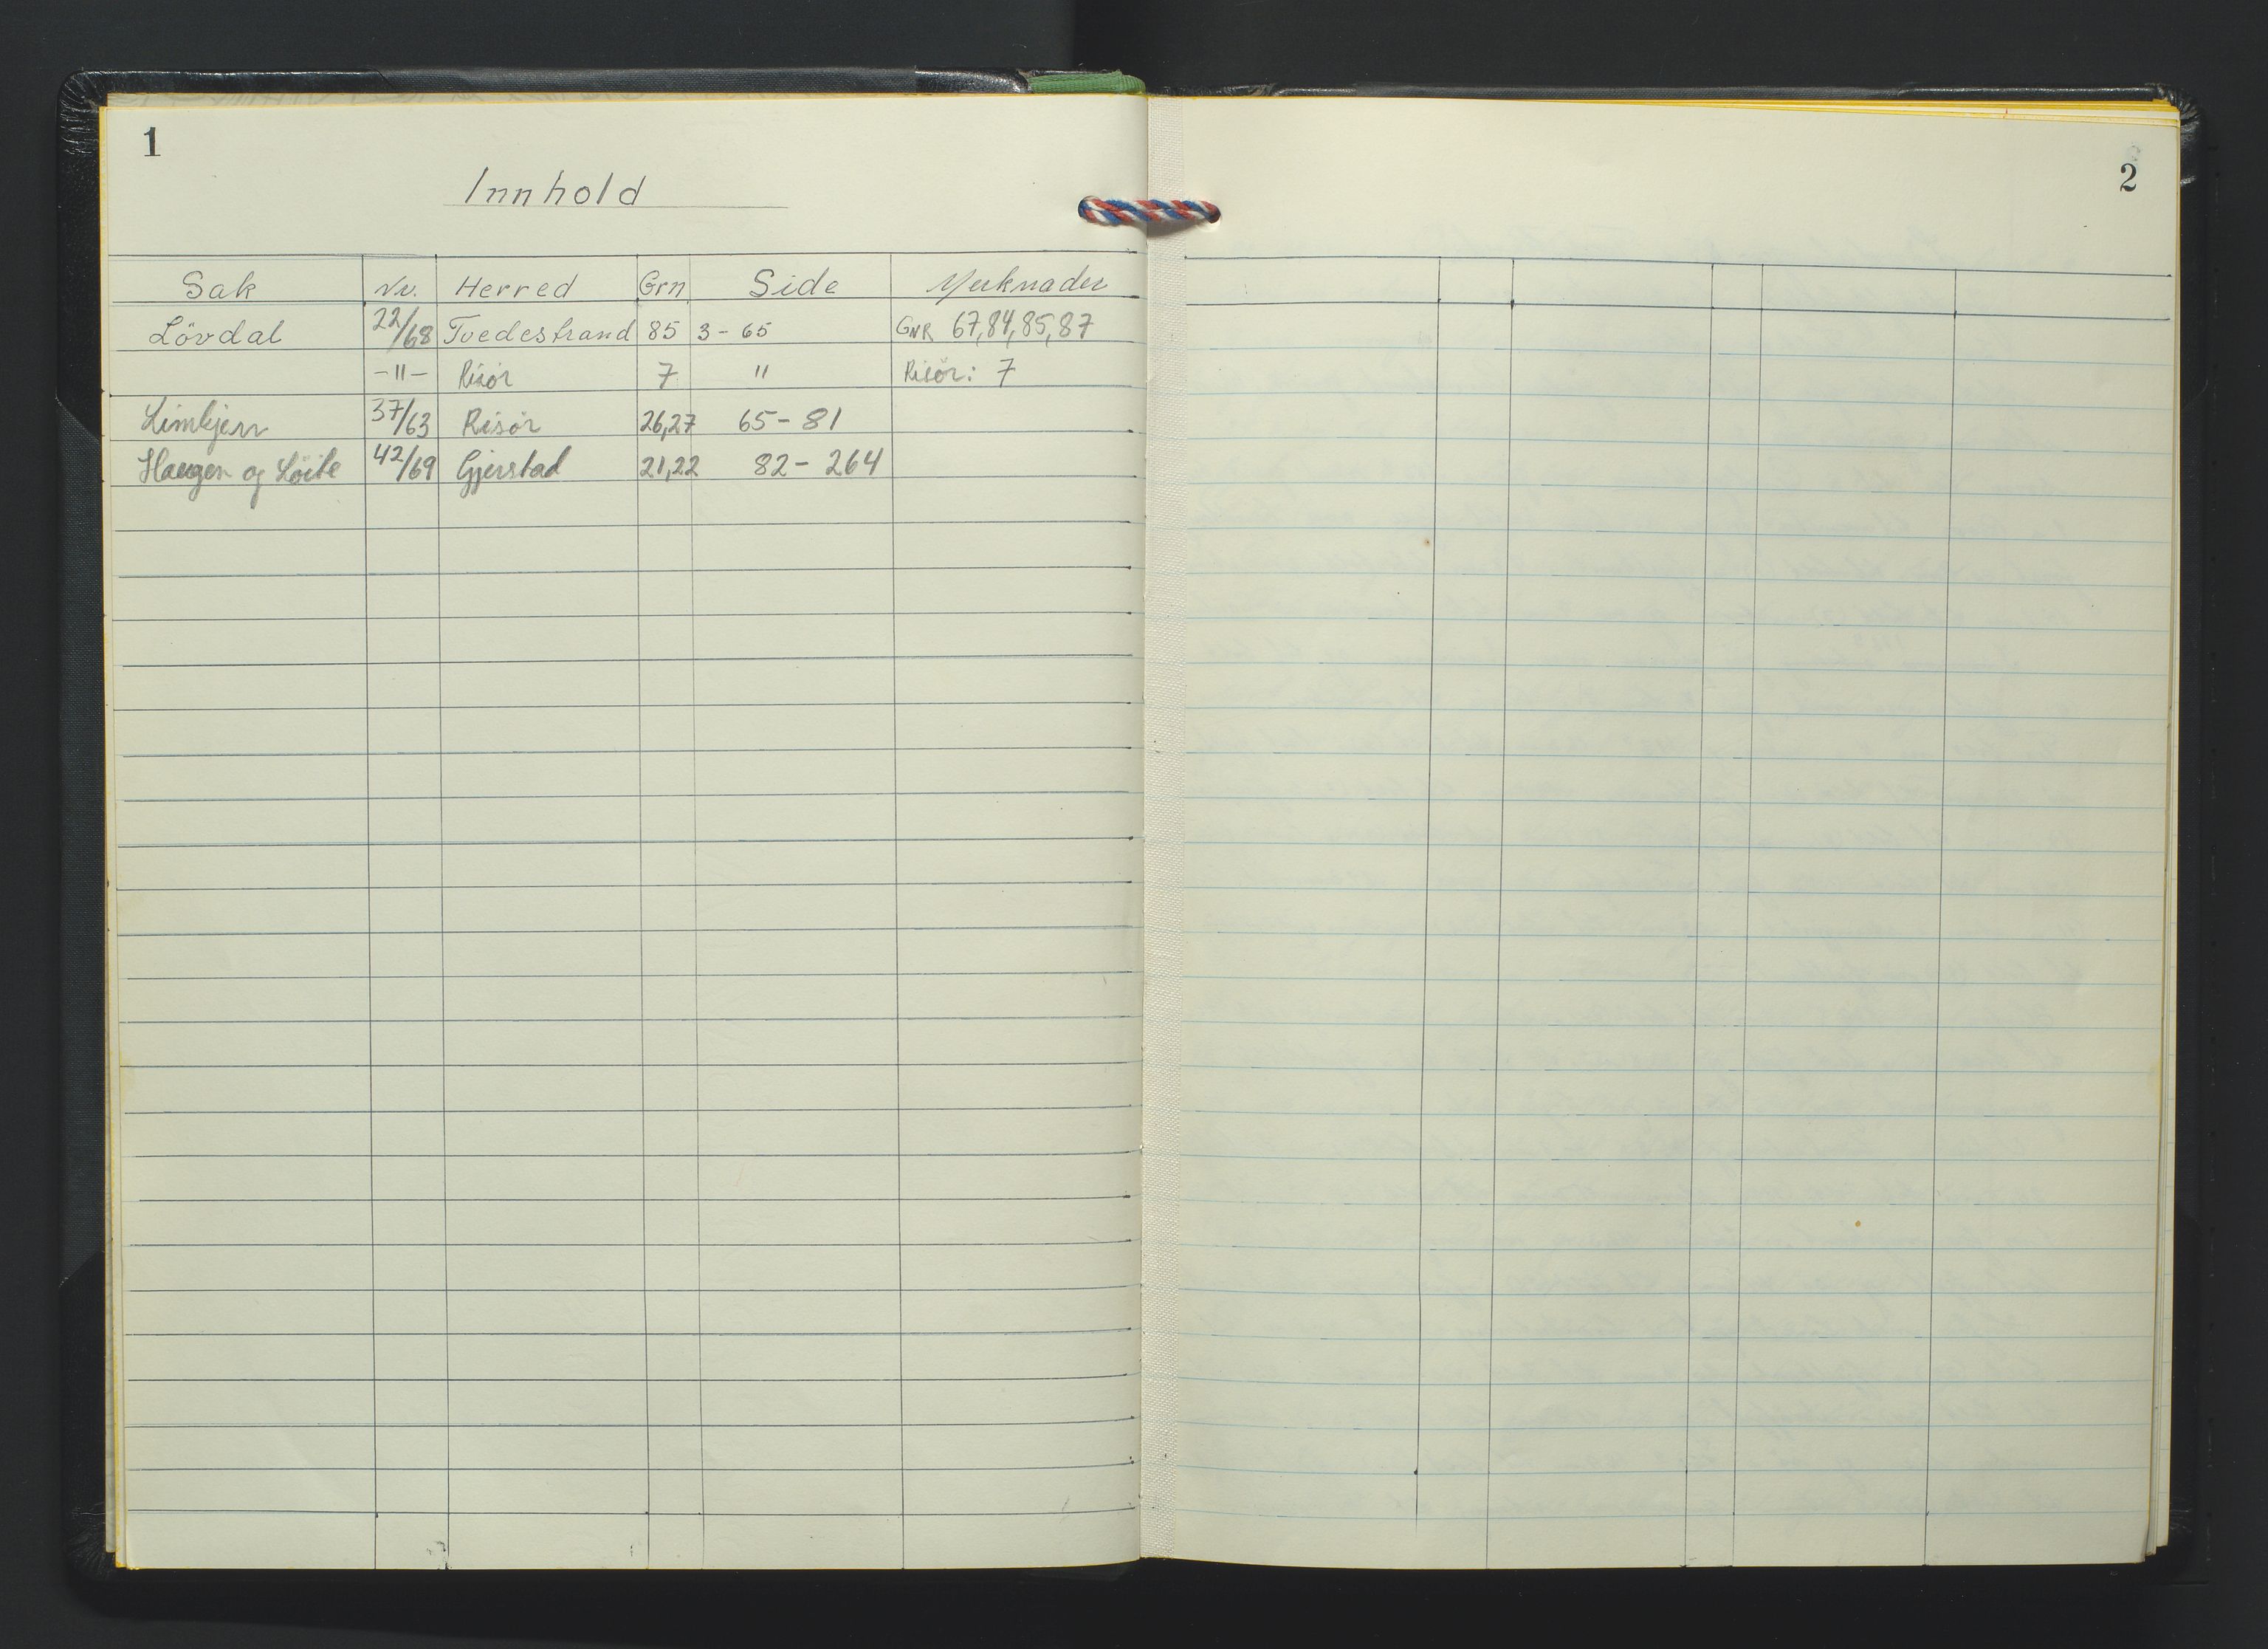 1
Innhold
Sak Nr. Herred Grn Side Merknader
Lövdal 22/68 Tvedestrand 85 3 - 65 GNR 67, 84, 85, 87
-"- Risör 7 " Risör: 7
Limkjern 37/63 Risör 26,27 65 - 81
Haugen og Löite 42/69 Gjerstad 21,22 82 - 264
2